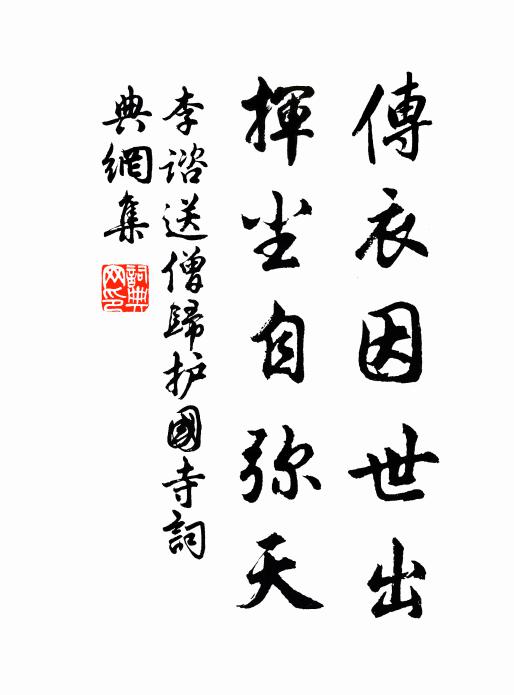 傳衣因世出
揮尘自弥天
李谘送僧歸护國寺詞
典網集
詞典网印